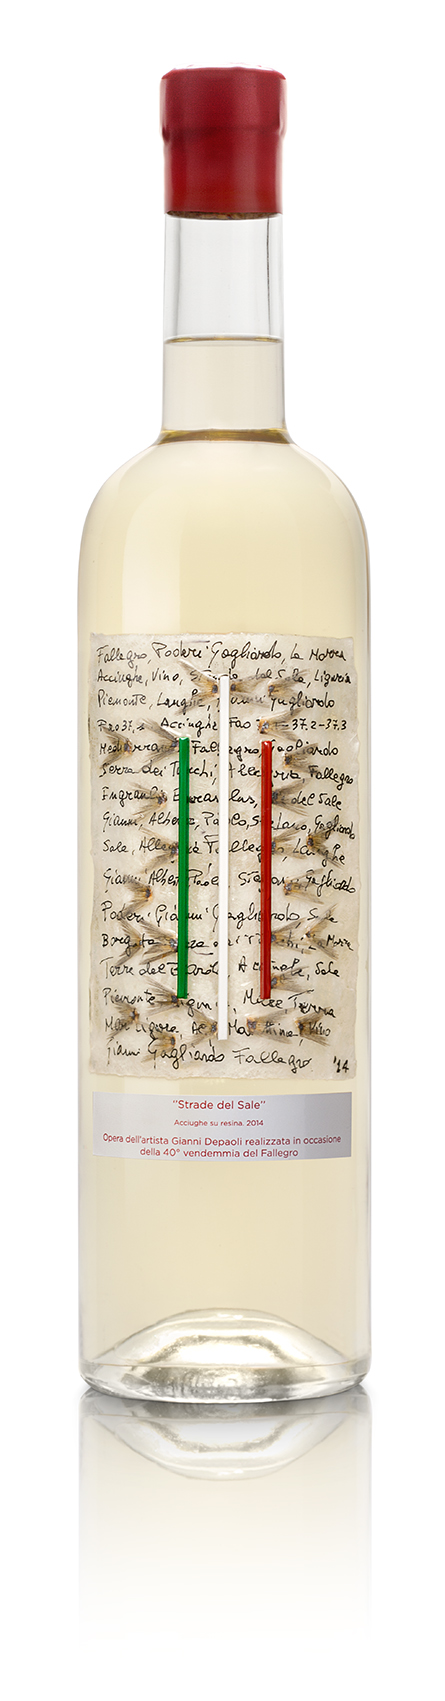 Fallegro, Poderi Gagliardo, La Morra
Acciughe, Vino, del Sale, Liguria
Piemonte, Langhe, Gianni Gagliardo
Fao 37,1 Acciughe Fao 37.2-37.3
Mediterraneo Fallegro, Gagliardo
Serra dei Turchi, Allegria, Fallegro
Engraulis del Sale
Gianni, Alberto, Paolo, Stefano, Gagliardo
Sale, Allegria Fallegro, Langhe
Gianni Alberto Paolo, Stefano, Gagliardo
Poderi Gianni Gagliardo Sale
Borgata Serra dei Turchi, La Morra
Terre del Barolo, Acciughe, Sale
Piemonte Liguria, Mare, Terra
Mar Ligure Vino
Gianni Gagliardo Fallegro '14
"Strade del Sale"
Acciughe su resina. 2014
Opera dell'artista Gianni Depaoli realizzata in occasione
della 40° vendemmia del Fallegro